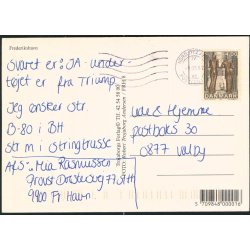 Frederikshavn
Svaret er: JA - under-
tøjet er fra Triump.
Jeg ønsker str.
B-80 i BH
str m i stringtrusse
Afs: Rasmussen
9900 Fr Havn
DANMARK
Ude & Hjemme
postboks 30
0877 Valby
5 709846 000016